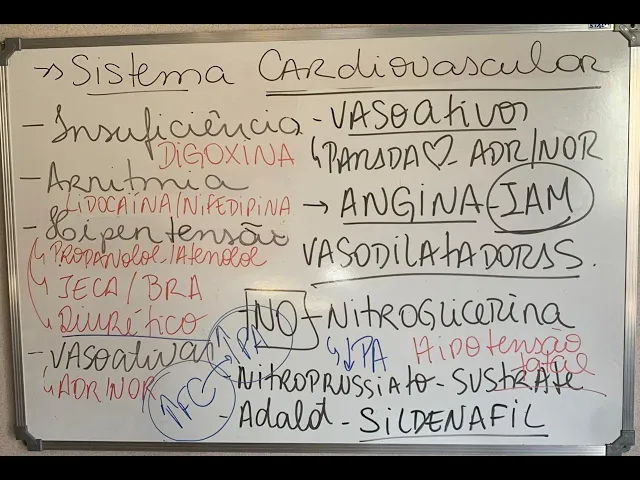 → Sistema CARdiovasculoR
- Insuficiência
DIGOXINA
- Arritmia
LIDOCAÍNA/NIFEDIPINA
- Hipertensão
↳ PROPANOLOL/Atenolol
↳ IECA/BRA
↳ Diurético
- VASOATIVAS
↳ ADR/NOR
- VASOATIVOS
↳ PARADA ♡ - ADR/NOR
→ ANGINA - IAM
VASODILATADORES.
- NO - NitroGlicerina
↑ PA
↳ ↓ PA
Hipotensão
fatal
- NITROPRUSSIATO - SUSTRATE
↑ FC
- Adalat - SILDENAFIL